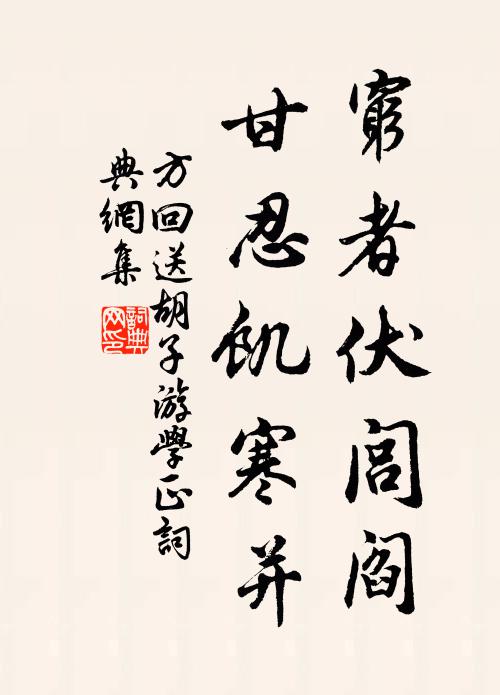 窮者伏閭閻
甘忍飢寒并
方回送胡子游學正詞
典網集
詞典
网印